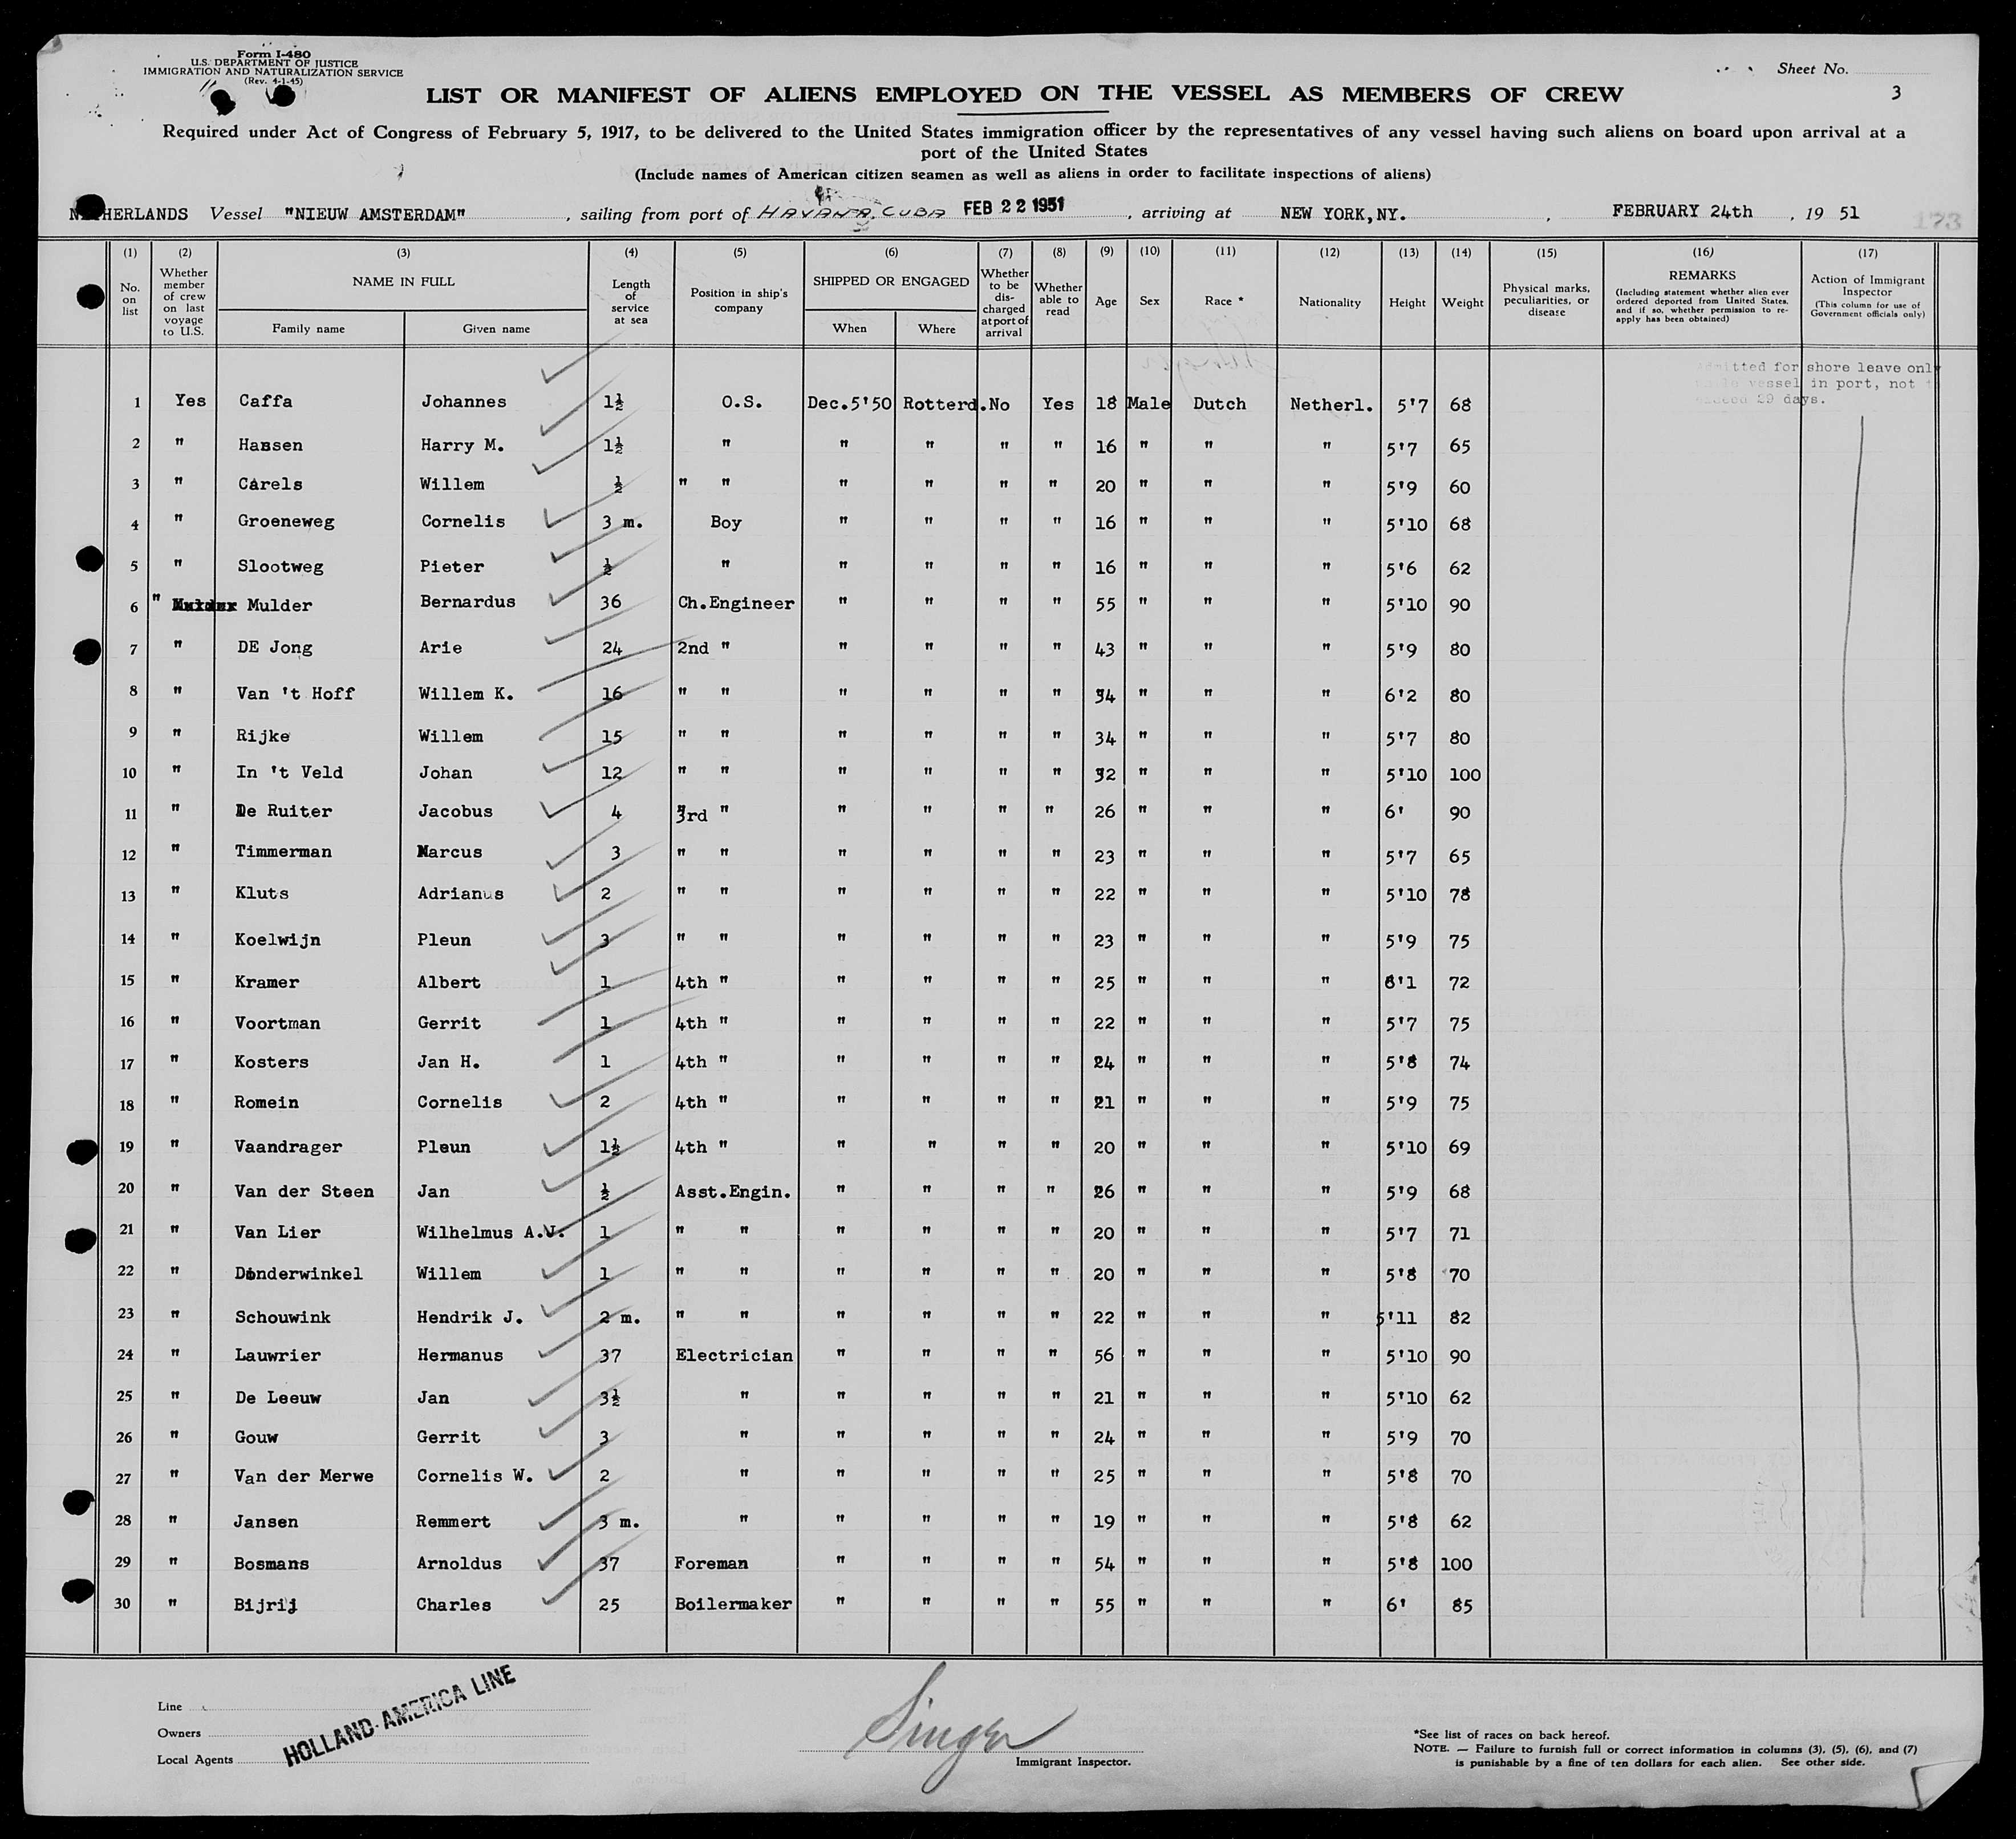 Form I-480
U.S. DEPARTMENT OF JUSTICE
IMMIGRATION AND NATURALIZATION SERVICE
(Rev. 4-1-45)
Sheet No.
3
LIST OR MANIFEST OF ALIENS EMPLOYED ON THE VESSEL AS MEMBERS OF CREW
Required under Act of Congress of February 5, 1917, to be delivered to the United States immigration officer by the representatives of any vessel having such aliens on board upon arrival at a
port of the United States
(Include names of American citizen seamen as well as aliens in order to facilitate inspections of aliens)
NETHERLANDS Vessel "NIEUW AMSTERDAM", sailing from port of HAVANA, CUBA FEB 22 1951, arriving at NEW YORK,NY., FEBRUARY 24th, 19 51
173
(1) No. on list (2) Whether member of crew on last voyage to U.S. (3) NAME IN FULL Family name Given name (4) Length of service at sea (5) Position in ship's company (6) SHIPPED OR ENGAGED When Where (7) Whether to be discharged at port of arrival (8) Whether able to read (9) Age (10) Sex (11) Race * (12) Nationality (13) Height (14) Weight (15) Physical marks, peculiarities, or disease (16) REMARKS (Including statement whether alien ever ordered deported from United States, and if so, whether permission to reapply has been obtained) (17) Action of Immigrant Inspector (This column for use of Government officials only)
Admitted for shore leave only
while vessel in port, not to
exceed 29 days.
1 Yes Caffa Johannes 1½ O.S. Dec.5'50 Rotterd. No Yes 18 Male Dutch Netherl. 5'7 68
2 " Hansen Harry M. 1½ " " " " " 16 " " " 5'7 65
3 " Carels Willem ½ " " " " " " 20 " " " 5'9 60
4 " Groeneweg Cornelis 3 m. Boy " " " " 16 " " " 5'10 68
5 " Slootweg Pieter ½ " " " " " 16 " " " 5'6 62
6 " Mulder Bernardus 36 Ch.Engineer " " " " 55 " " " 5'10 90
7 " DE Jong Arie 24 2nd " " " " " 43 " " " 5'9 80
8 " Van 't Hoff Willem K. 16 " " " " " " 34 " " " 6'2 80
9 " Rijke Willem 15 " " " " " " 34 " " " 5'7 80
10 " In 't Veld Johan 12 " " " " " " 32 " " " 5'10 100
11 " De Ruiter Jacobus 4 3rd " " " " " 26 " " " 6' 90
12 " Timmerman Marcus 3 " " " " " " 23 " " " 5'7 65
13 " Kluts Adrianus 2 " " " " " " 22 " " " 5'10 78
14 " Koelwijn Pleun 3 " " " " " " 23 " " " 5'9 75
15 " Kramer Albert 1 4th " " " " " 25 " " " 6'1 72
16 " Voortman Gerrit 1 4th " " " " " 22 " " " 5'7 75
17 " Kosters Jan H. 1 4th " " " " " 24 " " " 5'8 74
18 " Romein Cornelis 2 4th " " " " " 21 " " " 5'9 75
19 " Vaandrager Pleun 1½ 4th " " " " " 20 " " " 5'10 69
20 " Van der Steen Jan ½ Asst.Engin. " " " " 26 " " " 5'9 68
21 " Van Lier Wilhelmus A.J. 1 " " " " " " 20 " " " 5'7 71
22 " Donderwinkel Willem 1 " " " " " " 20 " " " 5'8 70
23 " Schouwink Hendrik J. 2 m. " " " " " " 22 " " " 5'11 82
24 " Lauwrier Hermanus 37 Electrician " " " " 56 " " " 5'10 90
25 " De Leeuw Jan 3½ " " " " " 21 " " " 5'10 62
26 " Gouw Gerrit 3 " " " " " 24 " " " 5'9 70
27 " Van der Merwe Cornelis W. 2 " " " " " 25 " " " 5'8 70
28 " Jansen Remmert 3 m. " " " " " 19 " " " 5'8 62
29 " Bosmans Arnoldus 37 Foreman " " " " 54 " " " 5'8 100
30 " Bijrij Charles 25 Boilermaker " " " " 55 " " " 6' 85
Line
Owners
Local Agents
HOLLAND-AMERICA LINE
Singer
Immigrant Inspector.
*See list of races on back hereof.
NOTE. — Failure to furnish full or correct information in columns (3), (5), (6), and (7)
is punishable by a fine of ten dollars for each alien. See other side.